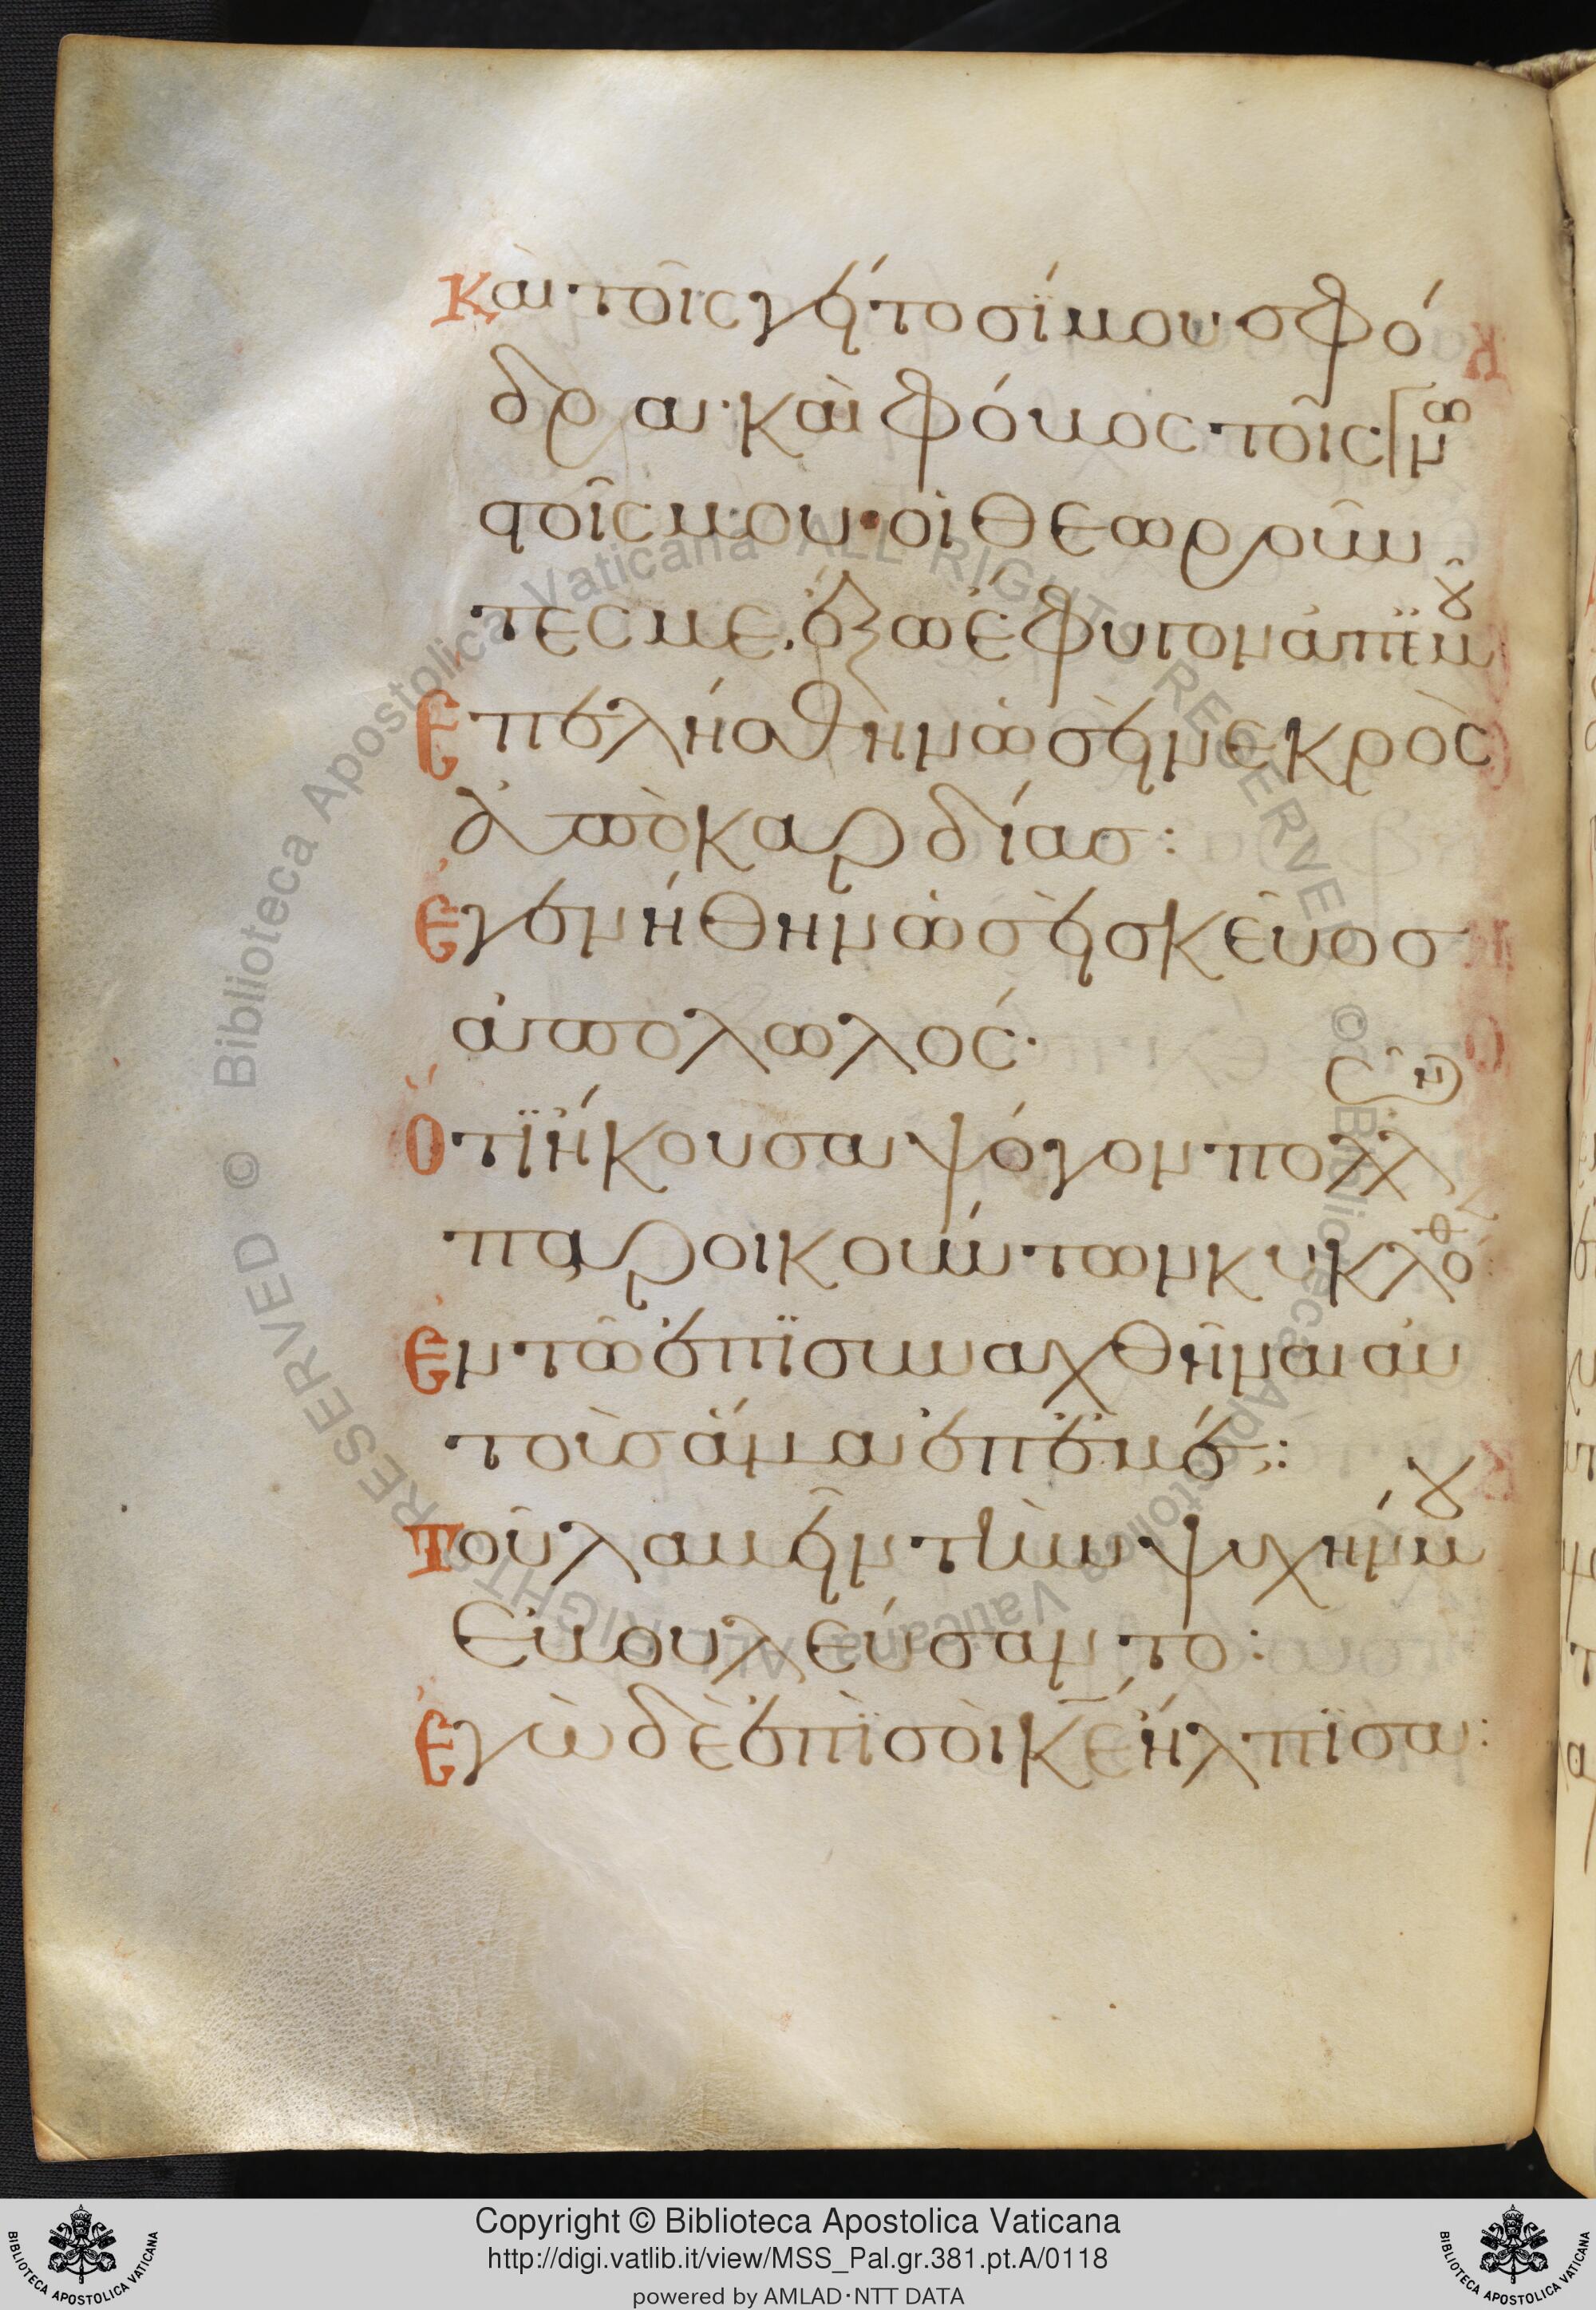 Καὶ τοῖς γείτοσί μου σφό
δρα· καὶ φόβος τοῖς γνω
στοῖς μου· οἱ θεωροῦν
τές με ἔξω ἔφυγον ἀπ' ἐμοῦ
Ἐπελήσθην ὡσεὶ νεκρὸς
ἀπὸ καρδίας:
Ἐγενήθην ὡσεὶ σκεῦος
ἀπολωλός·
Ὅτι ἤκουσα ψόγον πολλῶν
παροικούντων κυκλόθεν
Ἐν τῷ ἐπισυναχθῆναι αὐ
τοὺς ἅμα ἐπ' ἐμέ:
Τοῦ λαβεῖν τὴν ψυχήν μου
ἐβουλεύσαντο:
Ἐγὼ δὲ ἐπὶ σοὶ κε ἤλπισα:
Copyright © Biblioteca Apostolica Vaticana
http://digi.vatlib.it/view/MSS_Pal.gr.381.pt.A/0118
powered by AMLAD·NTT DATA
BIBLIOTECA APOSTOLICA VATICANA
BIBLIOTECA APOSTOLICA VATICANA
© Biblioteca Apostolica Vaticana ALL RIGHTS RESERVED
© Biblioteca Apostolica Vaticana ALL RIGHTS RESERVED